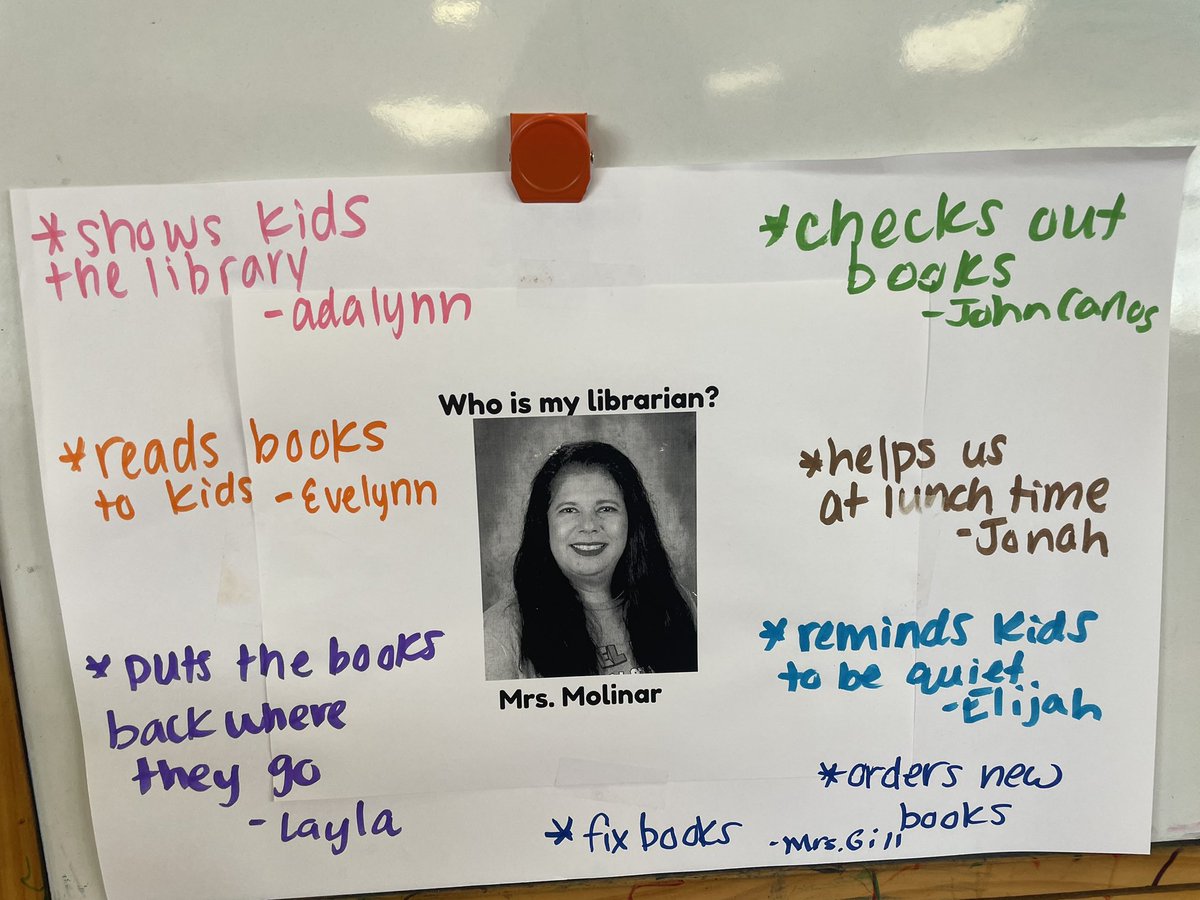 *shows kids
the library
-adalynn
*checks out
books
-John Carlos
Who is my librarian?
*reads books
to kids -Evelynn
*helps us
at lunch time
-Jonah
*puts the books
back where
they go
-Layla
*reminds kids
to be quiet
-Elijah
EL
Mrs. Molinar
*fix books -Mrs. Gill
*orders new
books